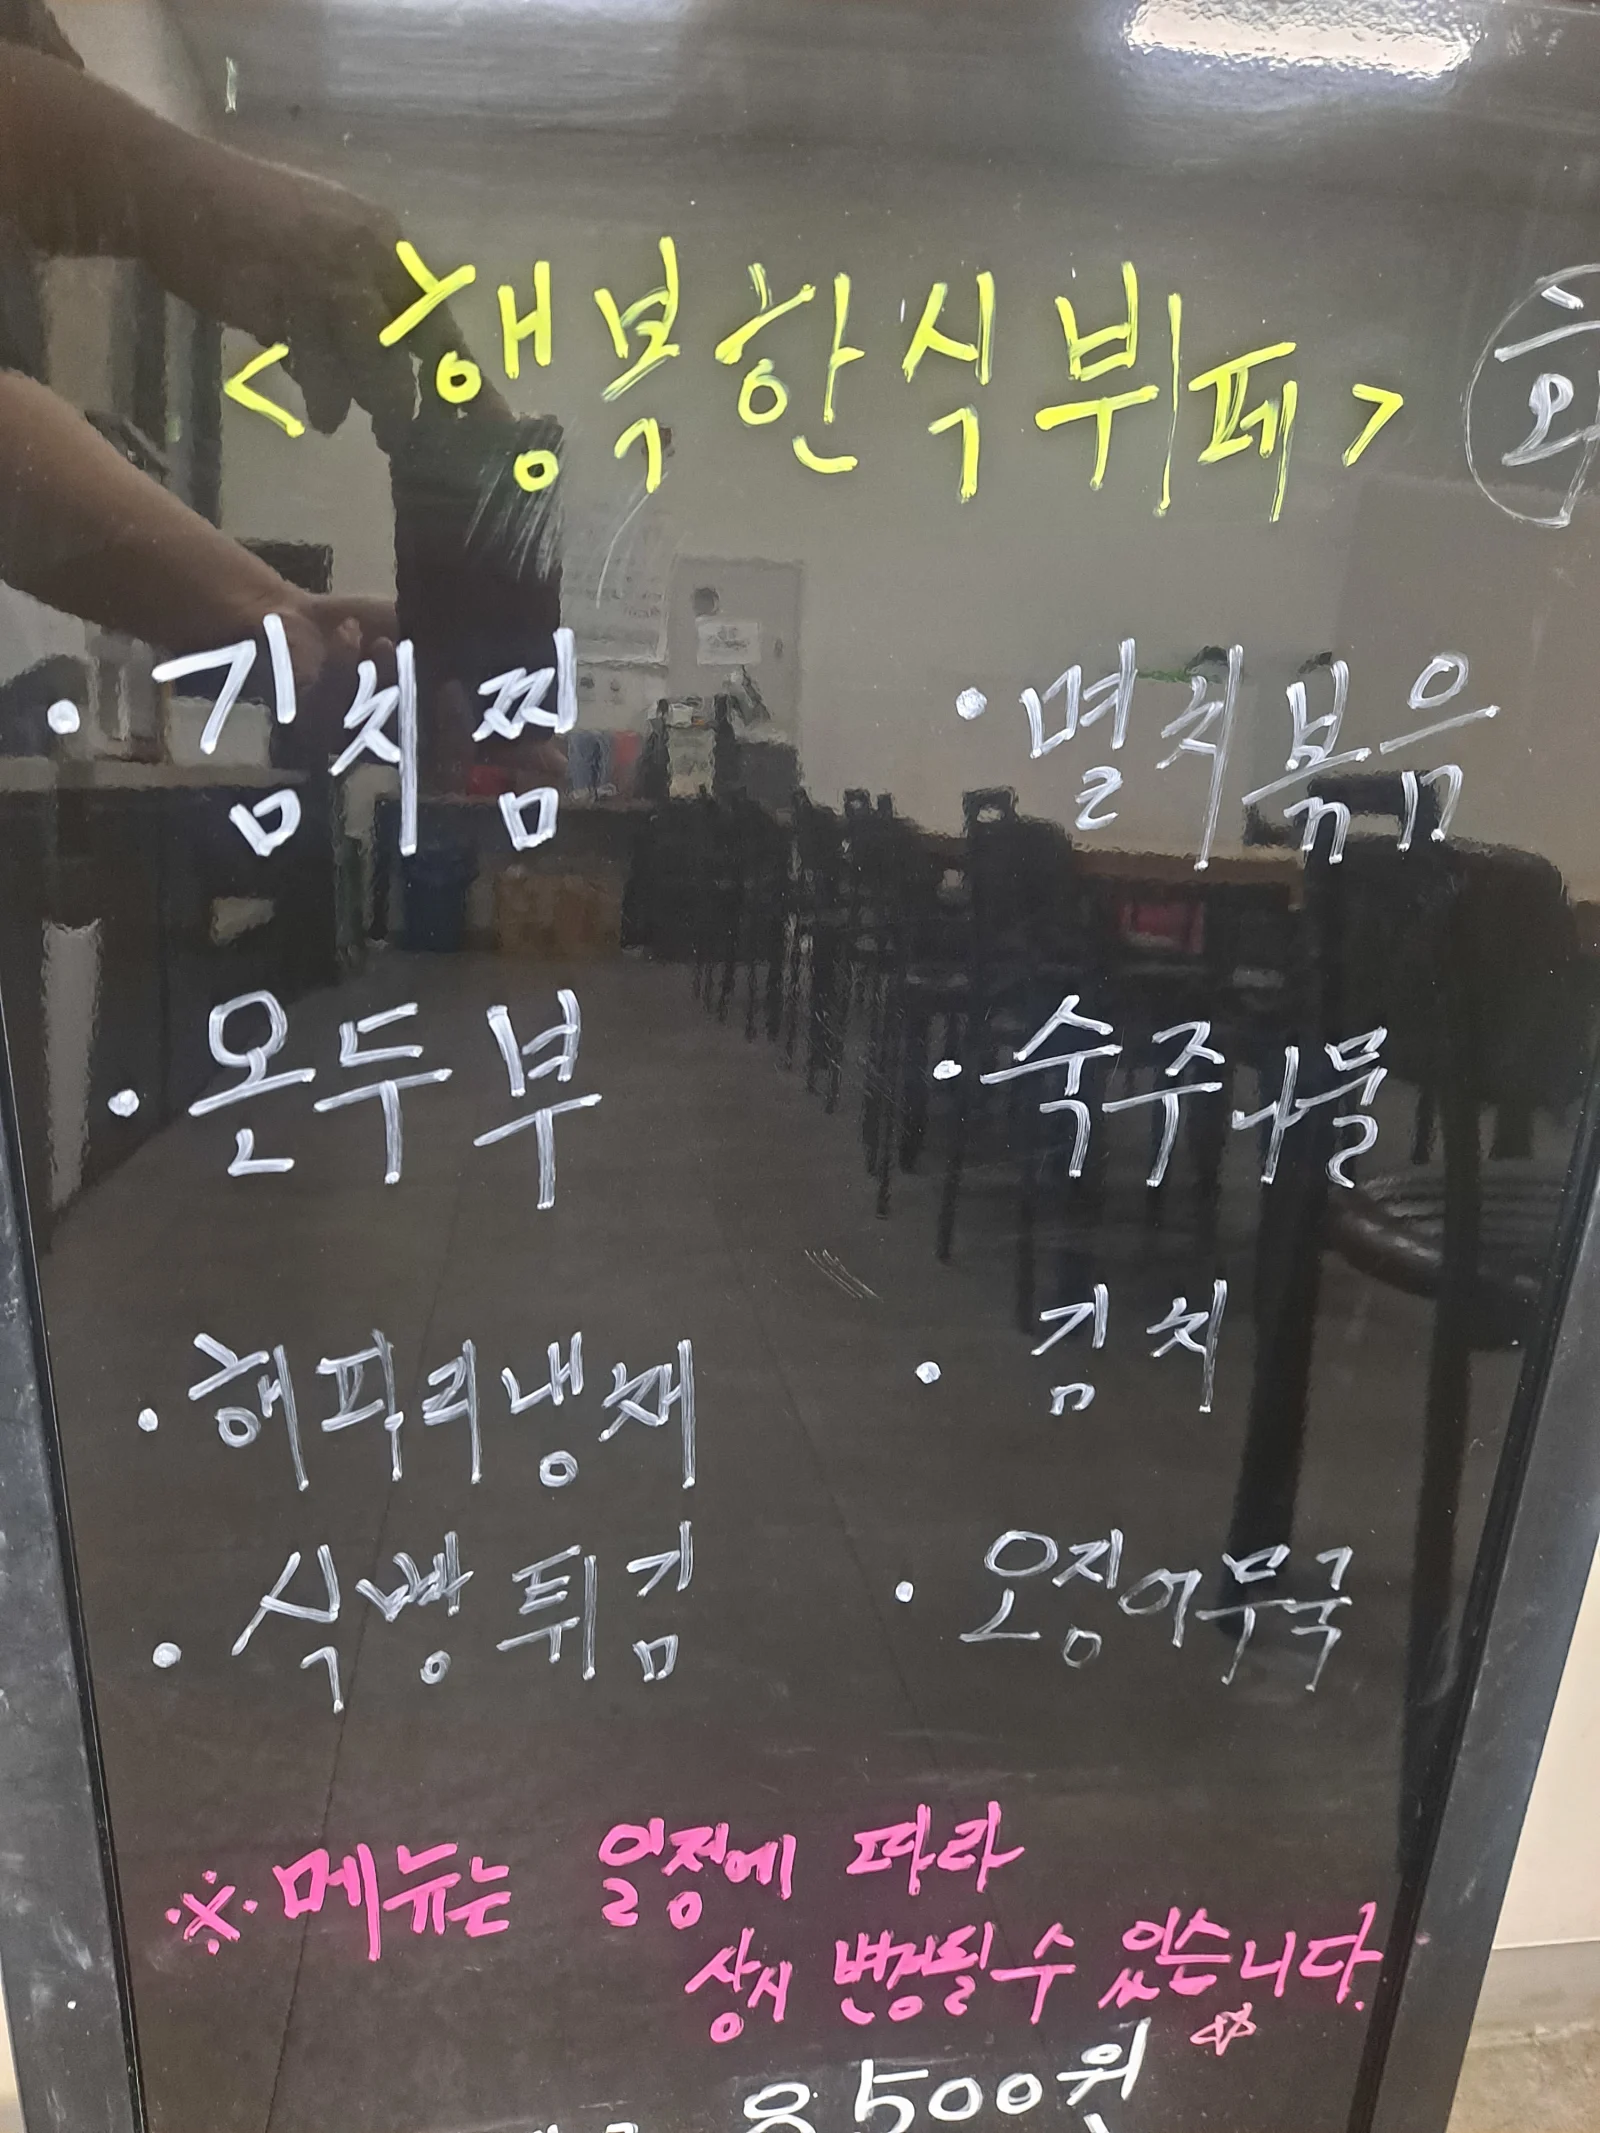 <행복한식뷔페> 화
· 김치찜
· 온두부
· 해파리냉채
· 식빵튀김
· 멸치볶음
· 숙주나물
· 김치
· 오징어무국
※ 메뉴는 일정에 따라
상시 변경될 수 있습니다. ☆
8500원